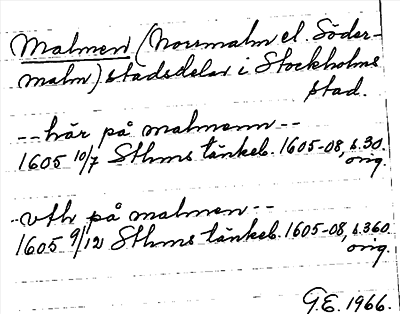 Malmen (Norrmalm el. Söder-
malm) stadsdelar i Stockholms
stad.
-- här på malmenn --
1605 10/7 Sthms tänkeb. 1605-08, s.30.
orig.
-- vthi på malmen --
1605 9/12 Sthms tänkeb. 1605-08, s.360
orig.
G.E. 1966.